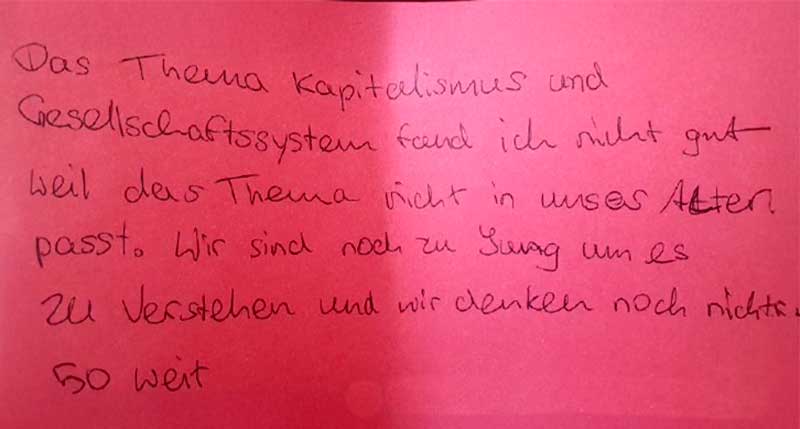 Das Thema Kapitalismus und
Gesellschaftssystem fand ich nicht gut
weil das Thema nicht in unses Alter
passt. Wir sind noch zu Jung um es
zu Verstehen und wir denken noch nicht
so weit